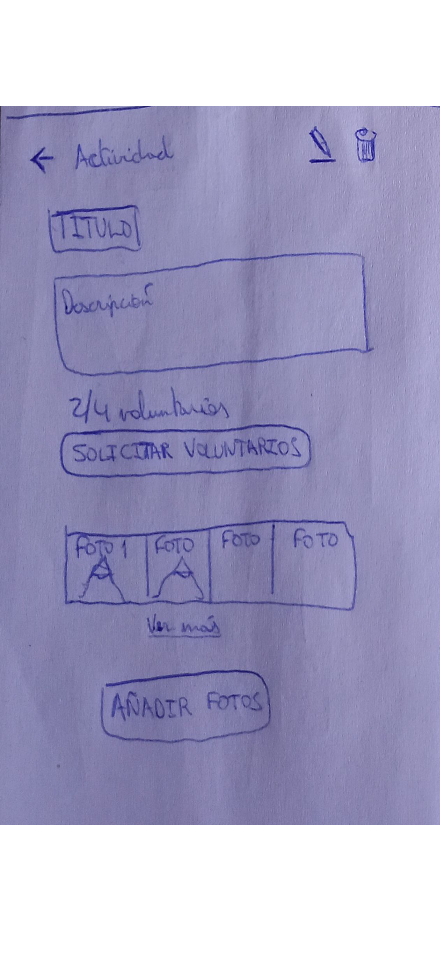 Actividad
TITULO
Descripción
2/4 voluntarios
SOLICITAR VOLUNTARIOS
FOTO 1 FOTO FOTO FOTO
Ver más
AÑADIR FOTOS